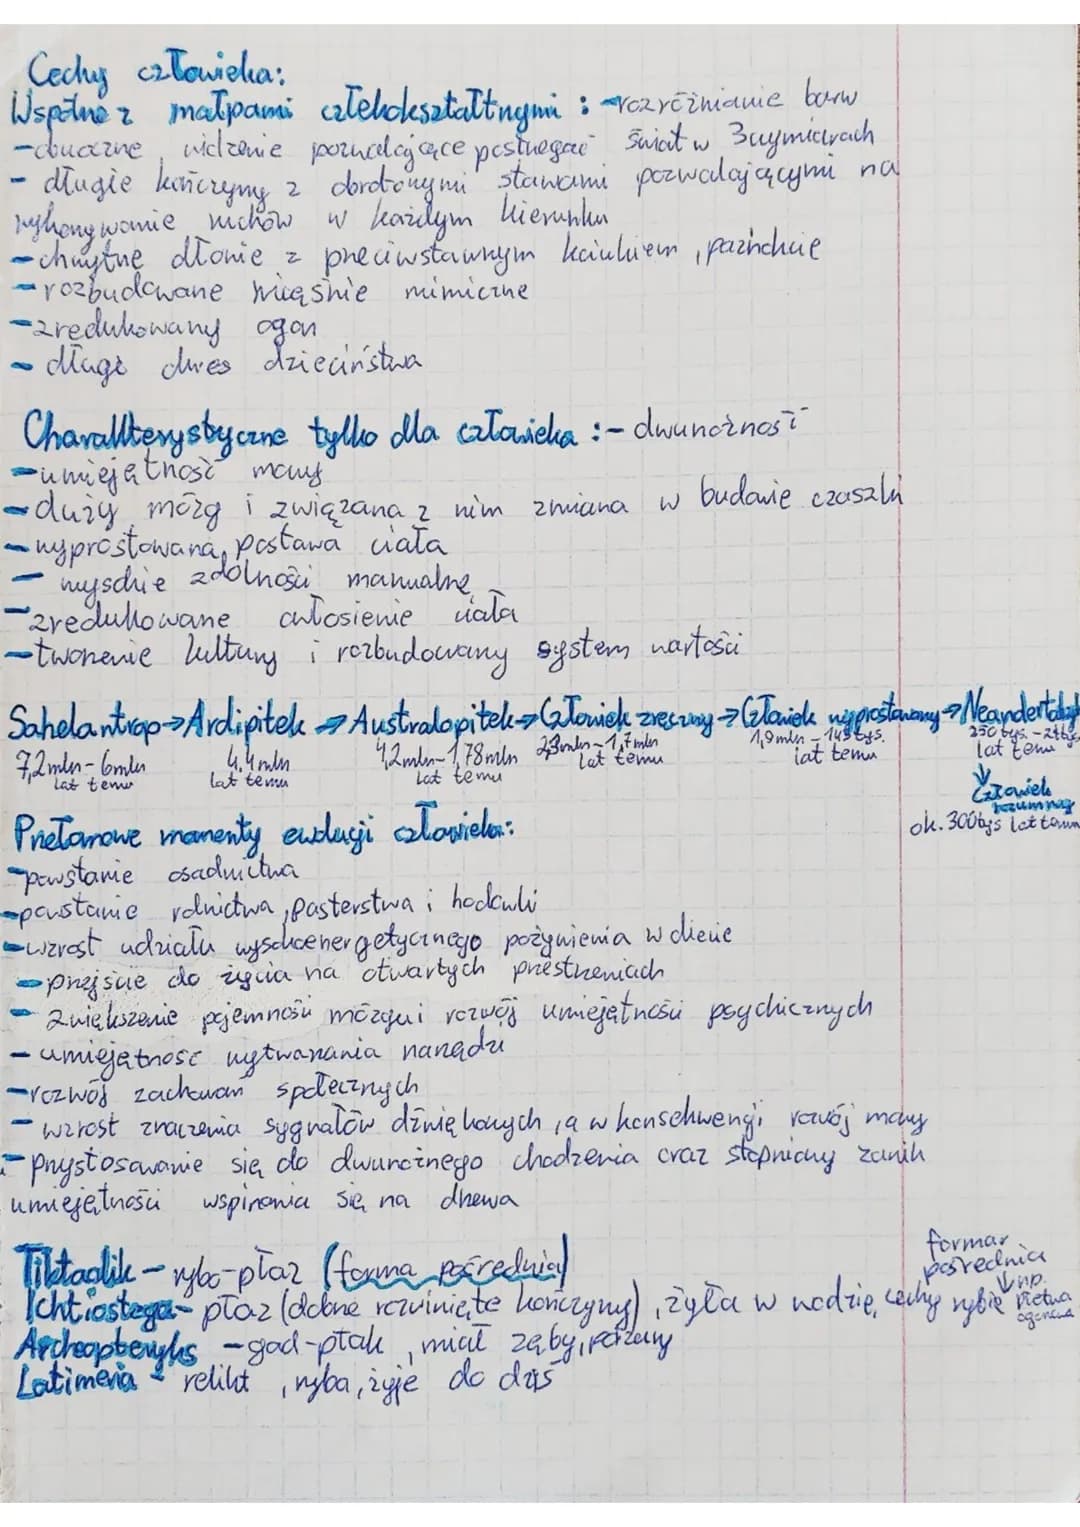 Cechy człowieka:
Wspólne z małpami człekokształtnymi : -rozróżnianie barw
-obuoczne widzenie pozwalające postrzegać świat w 3 wymiarach
- długie kończyny z obrotowymi stawami pozwalającymi na
wykonywanie ruchów w każdym kierunku
-chwytne dłonie z przeciwstawnym kciukiem , paznokcie
-rozbudowane mięśnie mimiczne
-zredukowany ogon
- długi okres dzieciństwa
Charakterystyczne tylko dla człowieka :- dwunożność
-umiejętność mowy
-duży mózg i związana z nim zmiana w budowie czaszki
-wyprostowana postawa ciała
- wysokie zdolności manualne
-zredukowane owłosienie ciała
-tworzenie kultury i rozbudowany system wartości
Sahelantrop→Ardipitek→Australopitek→Człowiek zręczny→Człowiek wyprostowany→Neandertalczyk
7,2mln-6mln lat temu 4,4mln lat temu 4,2mln-1,78mln lat temu 2,3mln-1,7mln lat temu 1,9mln-143tys. lat temu 250tys.- lat temu
Człowiek rozumny
ok. 300tys lat temu
Przełomowe momenty ewolucji człowieka:
-powstanie osadnictwa
-powstanie rolnictwa, pasterstwa i hodowli
-wzrost udziału wysokoenergetycznego pożywienia w diecie
-przejście do życia na otwartych przestrzeniach
- zwiększenie pojemności mózgu i rozwój umiejętności psychicznych
- umiejętność wytwarzania narzędzi
-rozwój zachowań społecznych
- wzrost znaczenia sygnałów dźwiękowych , a w konsekwencji rozwój mowy
- przystosowanie się do dwunożnego chodzenia oraz stopniowy zanik
umiejętności wspinania się na drzewa
Tiktaalik - rybo-płaz (forma pośrednia)
forma pośrednia
Ichtiostega- płaz (dobrze rozwinięte kończyny) , żyła w wodzie, cechy rybie np. płetwa ogonowa
Archeopteryks -gad-ptak , miał zęby, pazury
Latimeria - relikt , ryba, żyje do dziś